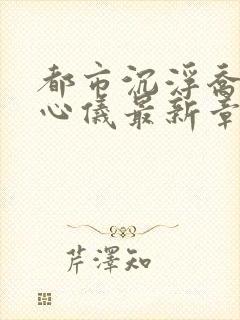 都市沉浮乔
心儀最新章
芹澤知